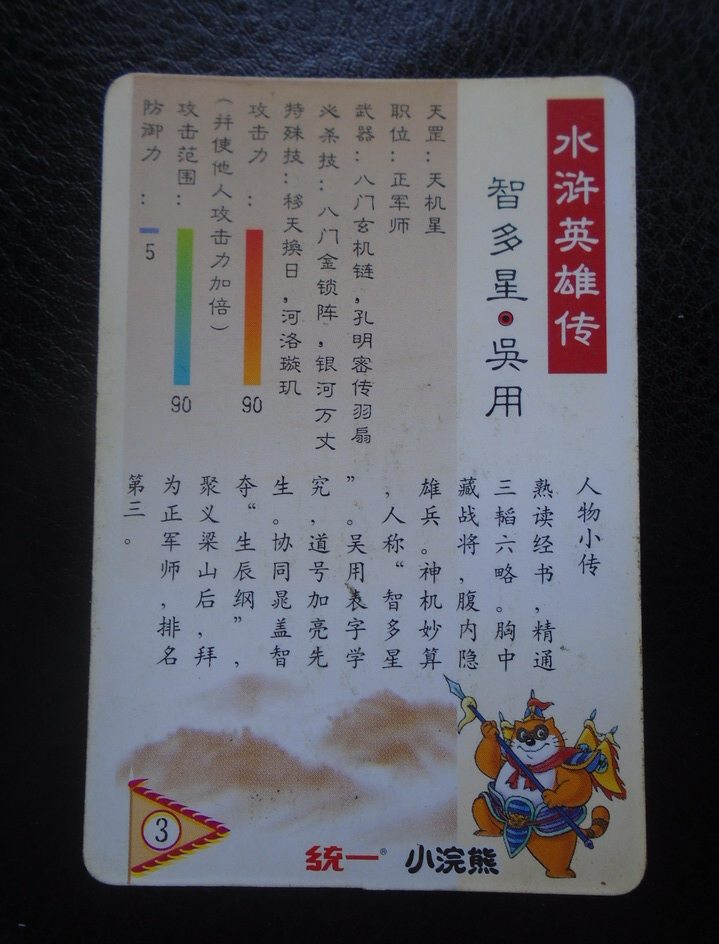 水浒英雄传
智多星·吳用
天罡：天机星
职位：正军师
武器：八门玄机链，孔明密传羽扇
必杀技：八门金锁阵，银河万丈
特殊技：移天换日，河洛璇玑
攻击力：90
（并使他人攻击力加倍）
攻击范围：90
防御力：5
人物小传
熟读经书，精通
三韬六略。胸中
藏战将，腹内隐
雄兵。神机妙算
，人称“智多星
”。吴用表字学
究，道号加亮先
生。协同晁盖智
夺“生辰纲”，
聚义梁山后，拜
为正军师，排名
第三。
3
统一®
小浣熊